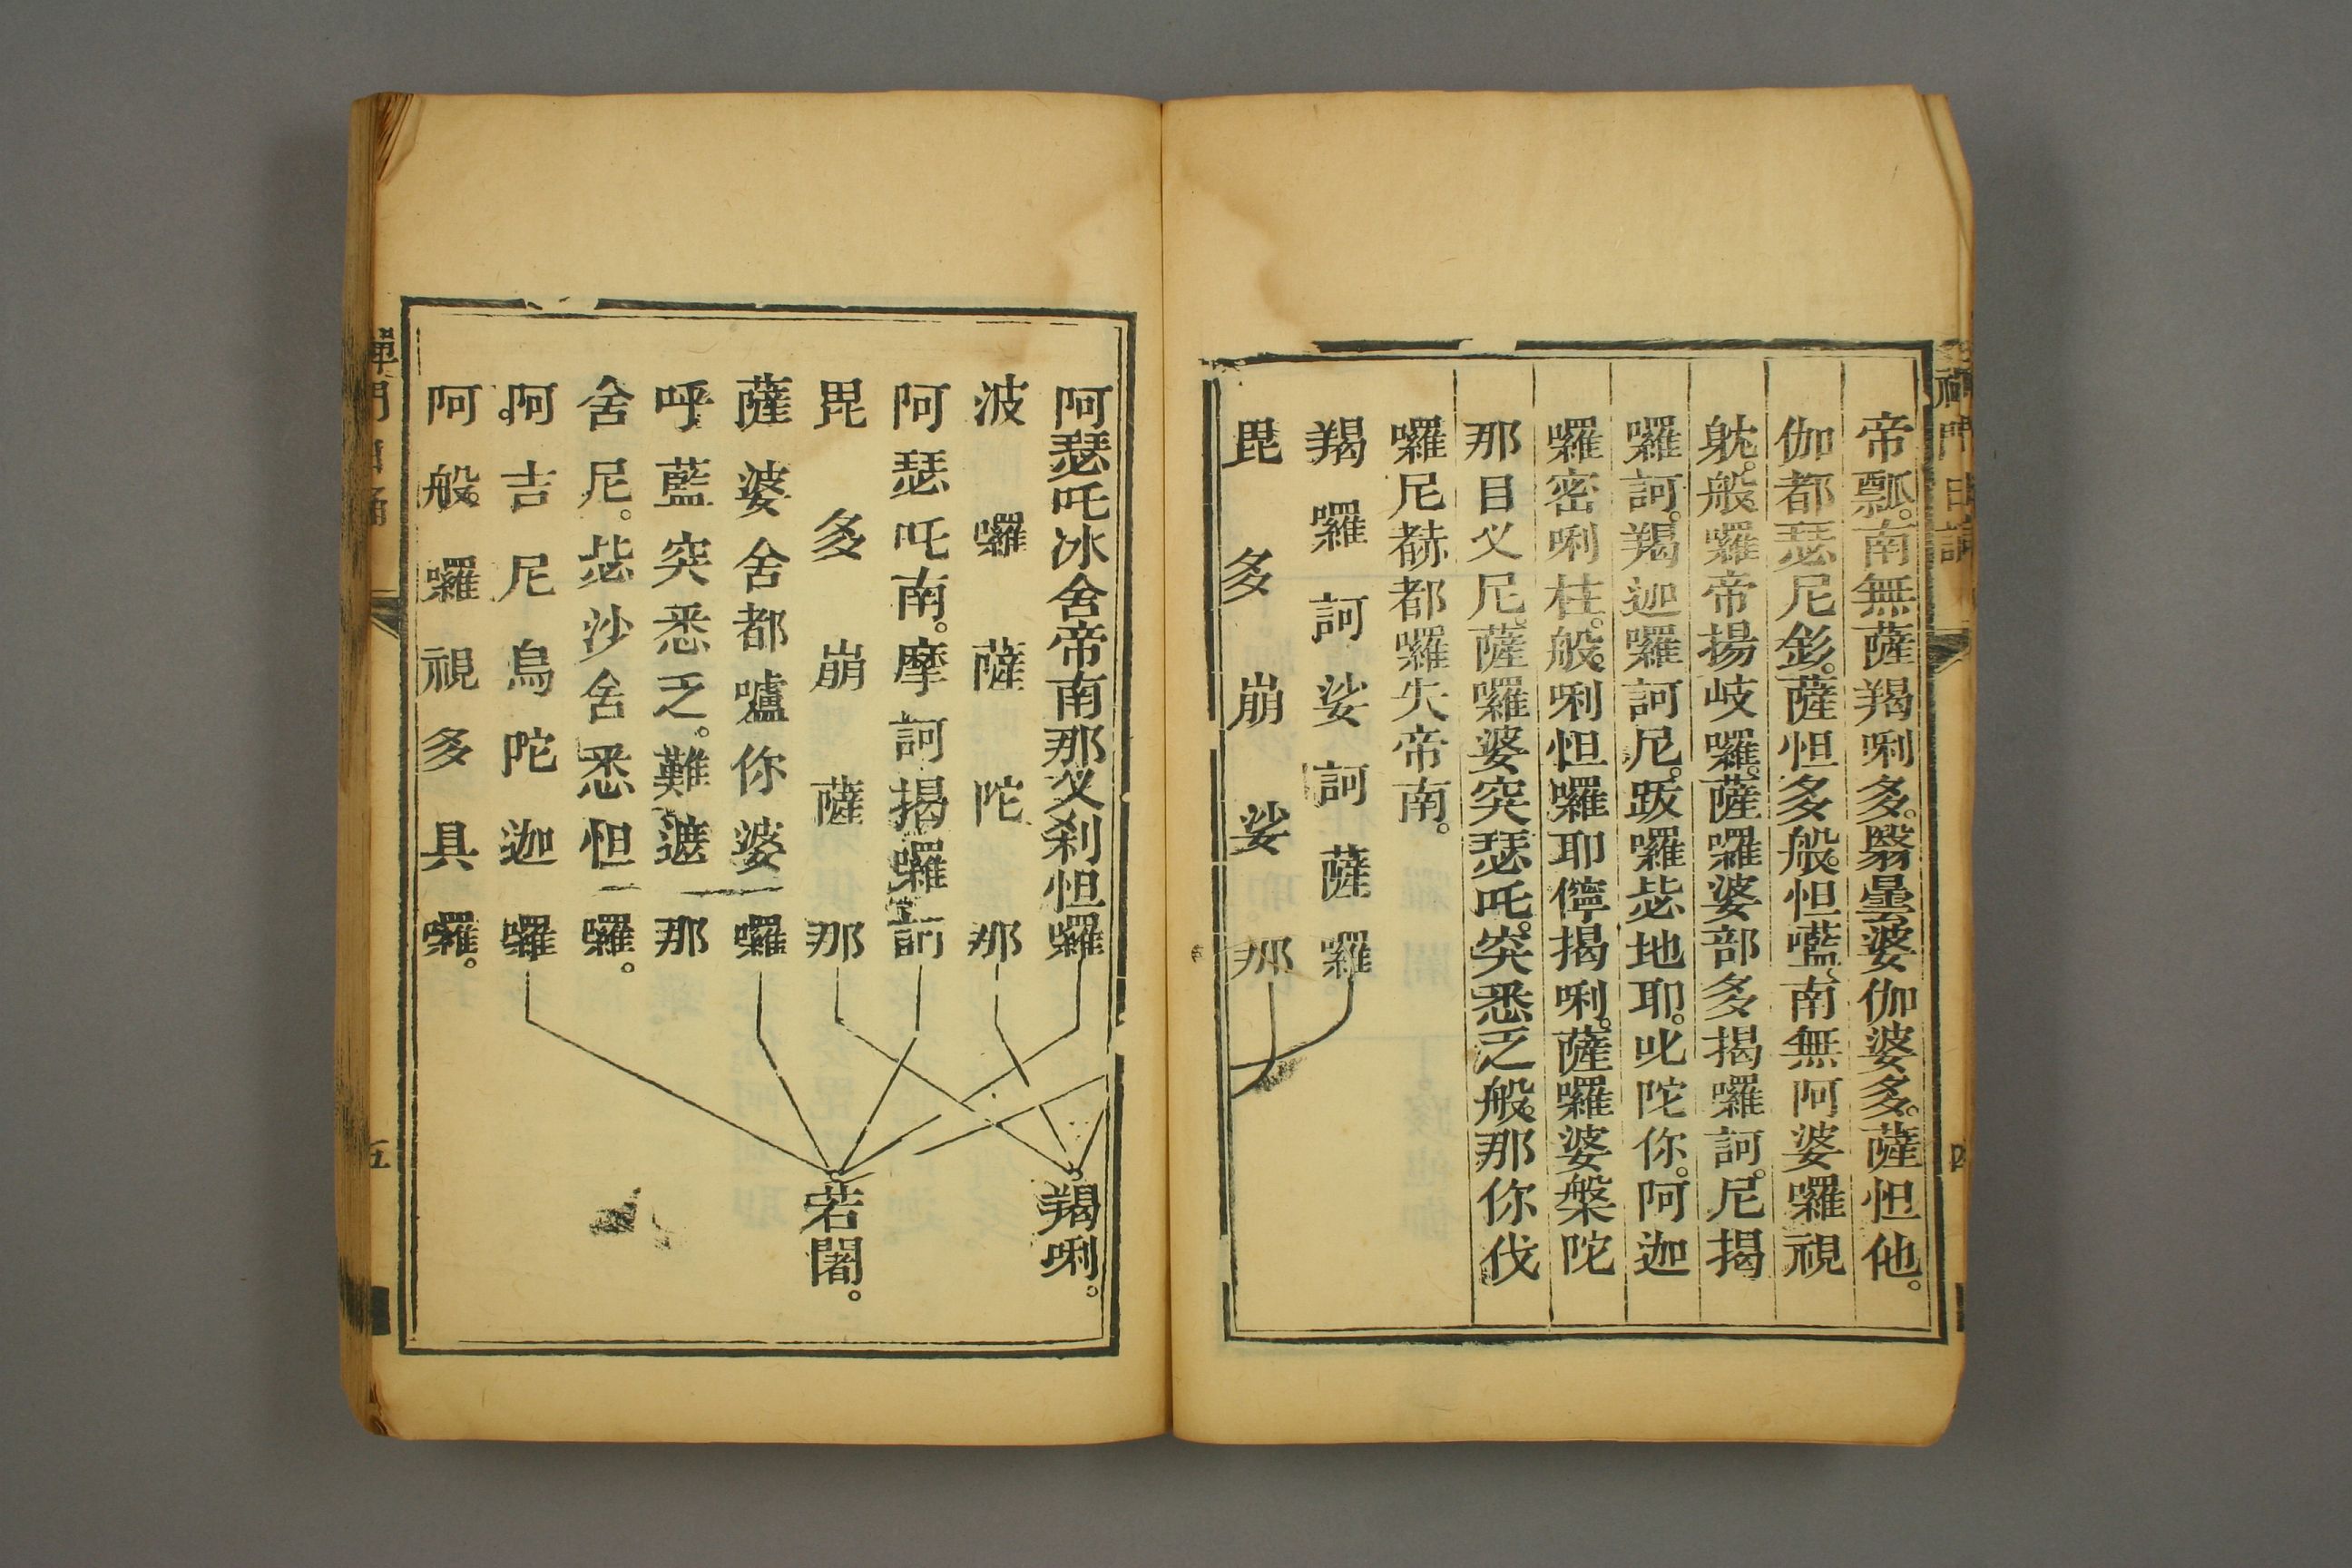 禪門日誦
四
帝瓢。南無薩羯唎多。翳曇婆伽婆多。薩怛他。
伽都瑟尼釤。薩怛多般。怛嚂、南無阿婆囉視
躭。般。囉帝揚岐囉。薩囉婆部多揭囉訶。尼揭
囉訶。羯迦囉訶尼。跋囉毖地耶。叱陀你。阿迦
囉密唎柱。般。唎怛囉耶儜揭唎。薩囉婆槃陀
那目乂尼。薩囉婆突瑟吒。突悉乏般。那你伐
囉尼赦都囉失帝南。
羯囉訶娑訶薩囉
毘多崩娑那
阿瑟吒冰舍帝南那乂剎怛囉
波囉薩陀那
羯唎。
阿瑟吒南。摩訶揭囉訶
毘多崩薩那
若闍。
薩婆舍都嚧你婆囉
呼藍突悉乏。難遮那
舍尼。毖沙舍悉怛囉。
阿吉尼烏陀迦囉
阿般。囉視多具囉。
禪門日誦
五